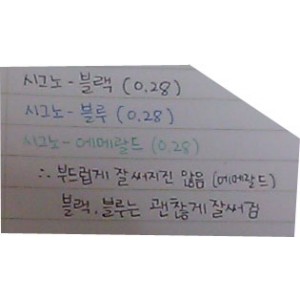 시그노-블랙 (0.28)
시그노-블루 (0.28)
시그노-에메랄드 (0.28)
∴ 부드럽게 잘써지진 않음 (에메랄드)
블랙, 블루는 괜찮게 잘써짐